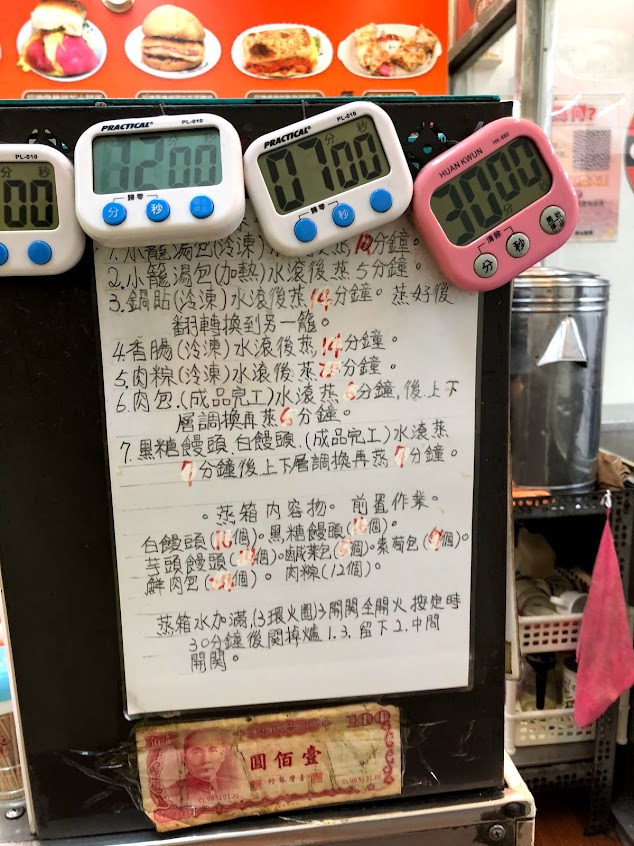 PRACTICAL® PL-010
PRACTICAL® PL-010
HUAN KWUN HK-680
PL-010
分 秒
分 秒
分 秒
:00
12:00
07:00
30:00
歸零
分 秒
歸零
分 秒
清除
分 秒
1.小籠湯包(冷凍)水滾後蒸12分鐘。
2.小籠湯包(加熱)水滾後蒸5分鐘。
3.鍋貼(冷凍)水滾後蒸14分鐘。蒸好後
翻轉換到另一籠。
4.香腸(冷凍)水滾後蒸14分鐘。
5.肉粽(冷凍)水滾後蒸分鐘。
6.肉包.(成品完工)水滾蒸6分鐘,後上下
層調換再蒸6分鐘。
7.黑糖饅頭.白饅頭.(成品完工)水滾蒸
7分鐘後上下層調換再蒸7分鐘。
。蒸箱內容物。前置作業。
白饅頭(16個)。黑糖饅頭(16個)。
芋頭饅頭(個)。鹹菜包(個)。素荷包(個)。
鮮肉包(個)。肉粽(12個)。
蒸箱水加滿,(3環火圈)3開關全開火按定時
30分鐘後関掉爐1.3.留下2.中間
開関。
100
壹佰圓
臺灣銀行